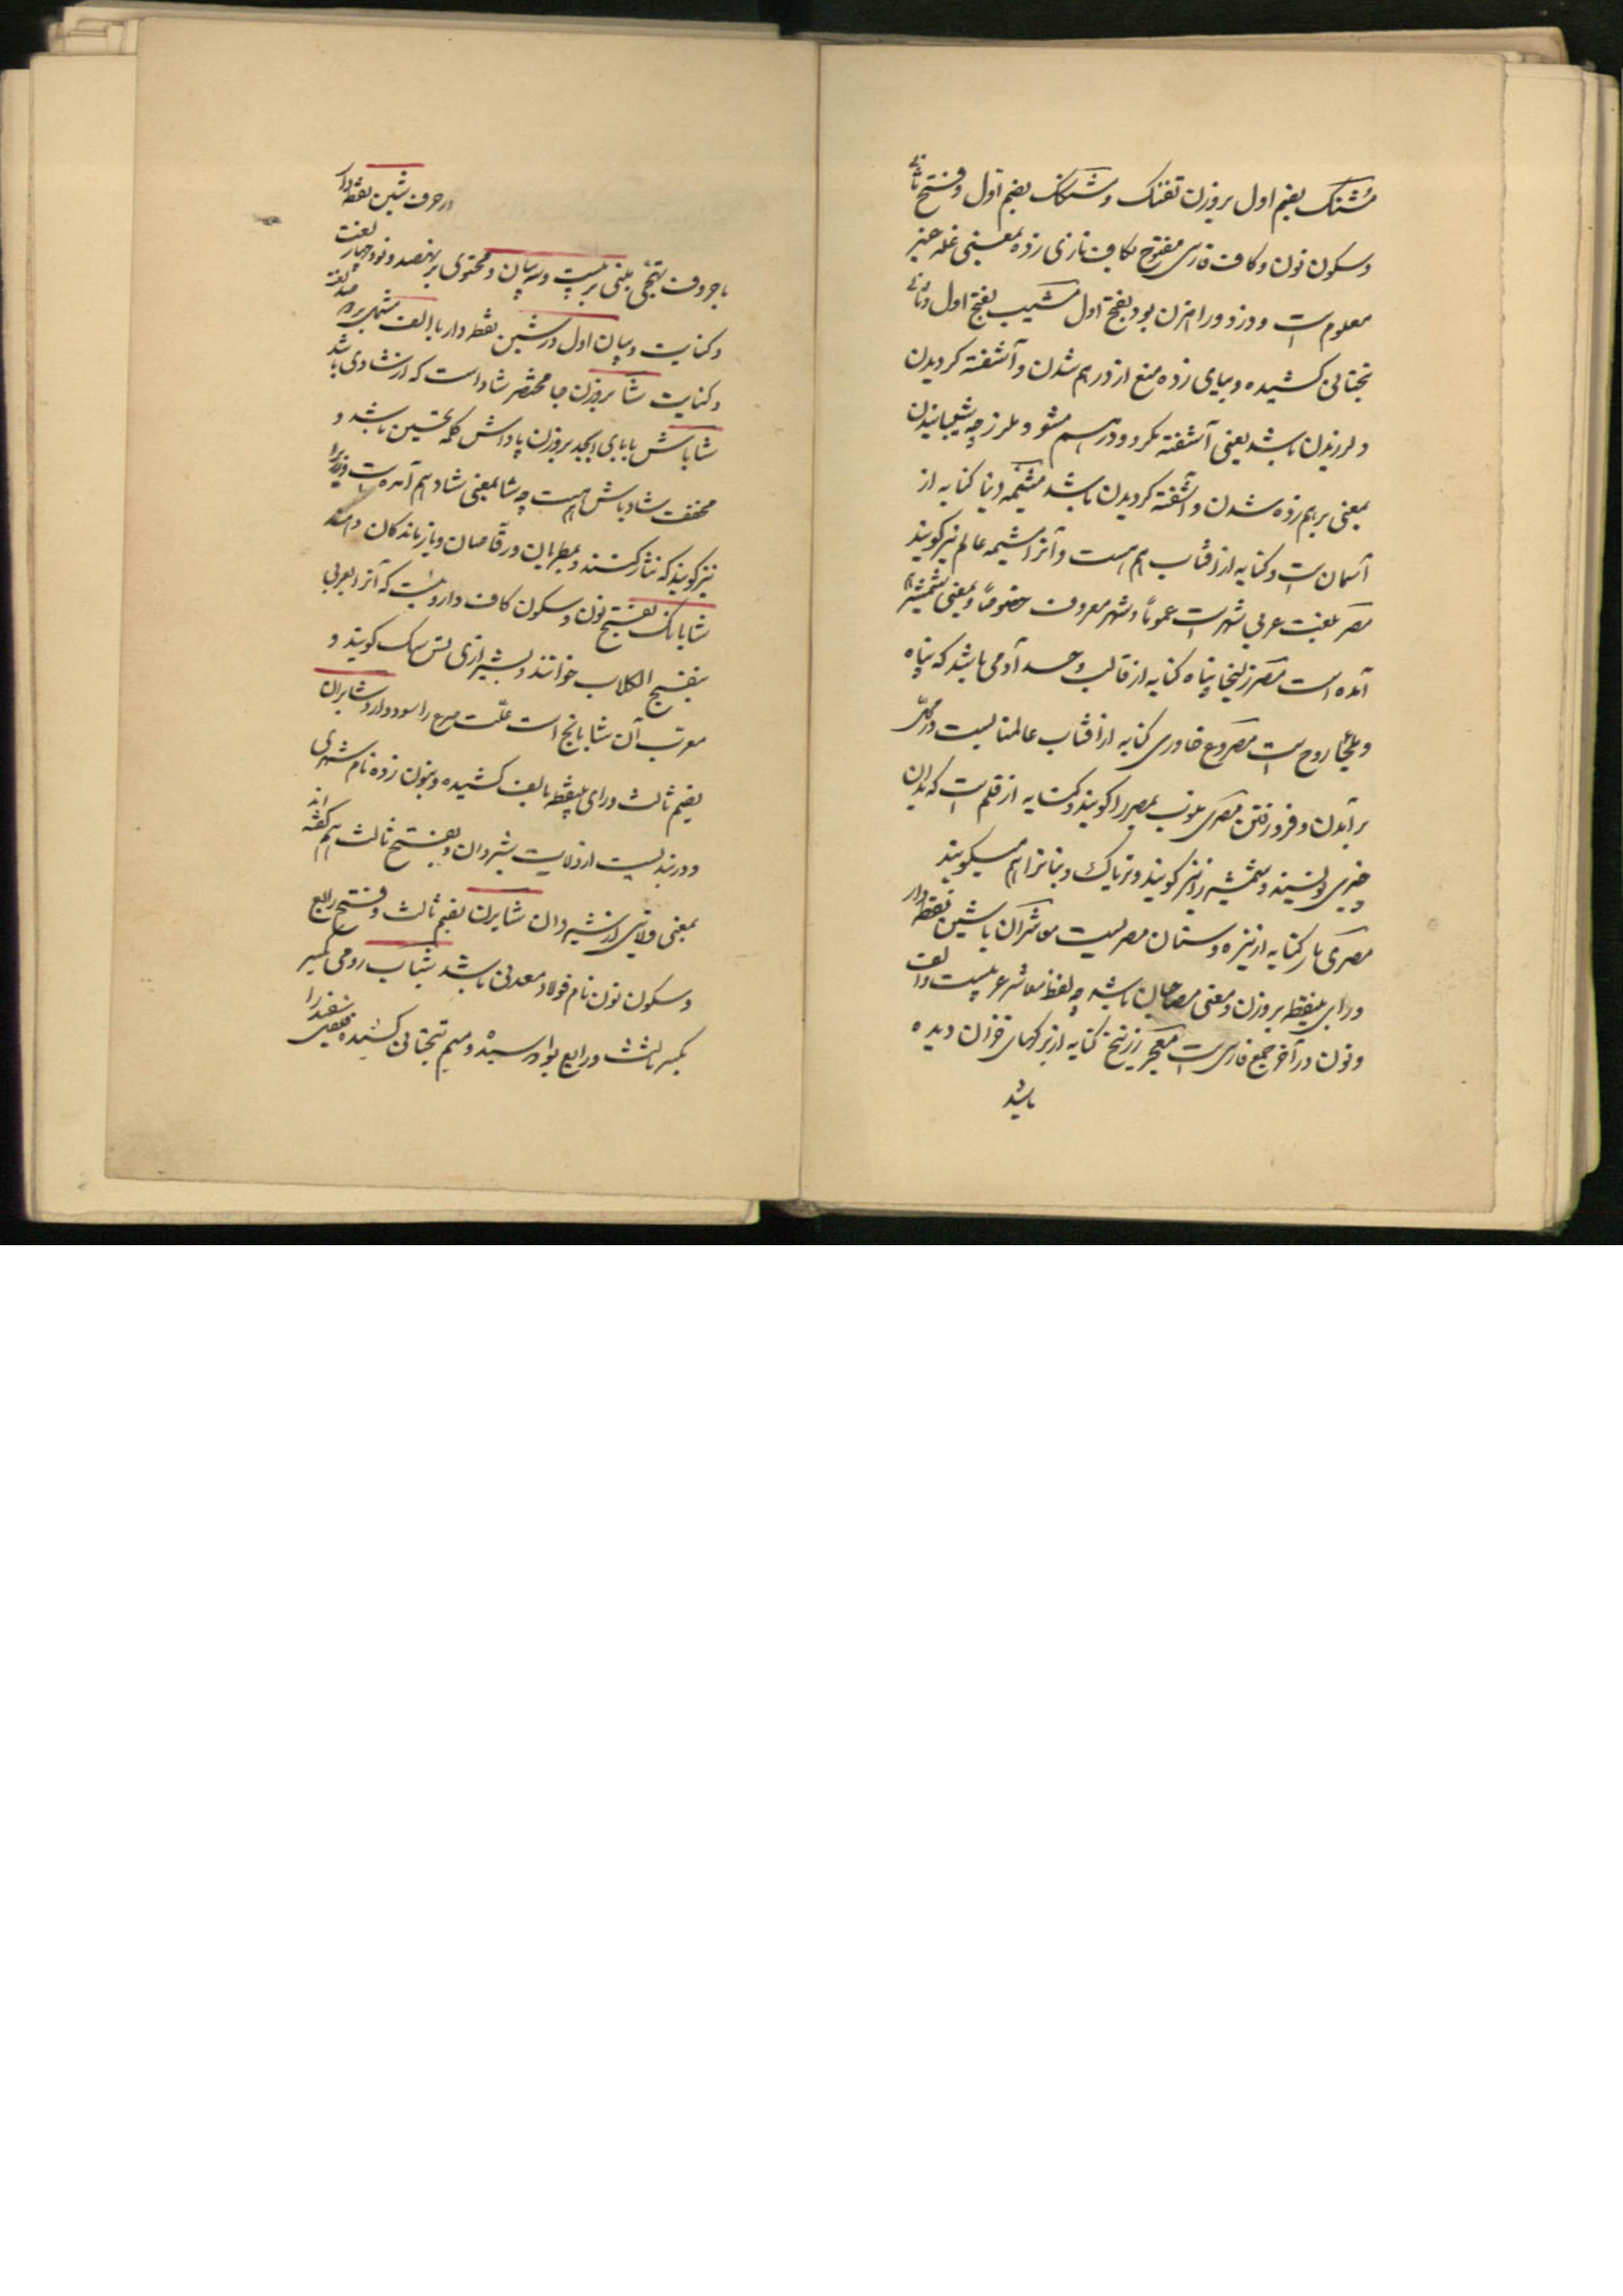 مشنک بضم اول بروزن تفنک و مشنکک بضم اول و فتح ثانی
و سکون نون و کاف فارسی مفتوح بکاف تازی زده بمعنی غله غیر
معلوم است و دزد و راهزن بود بفتح اول مشیب بفتح اول و ثانی
بتحتانی کشیده و ببای زده منع از درهم شدن و آشفته کردیدن
و لرزیدن باشد یعنی آشفته مکرد و درهم مشو و ملرز چه شیبانیدن
بمعنی برهم زده شدن و آشفته کردیدن باشد مشیمه دنیا کنایه از
آسمان است و کنایه از آفتاب هم هست و آنرا مشیمه عالم نیز کویند
مصر بلغت عربی شهر است عموماً و شهر معروف خصوصاً و بمعنی شمشیر هم
آمده است مصر زلیخا پناه کنایه از قالب و جسد آدمی باشد که پناه
و ملجاء روح است مصروع خاوری کنایه از آفتاب عالمتابست در محل
برآمدن و فرو رفتن مصری منسوب بمصر را کویند و کنایه از قلم است که بدان
چیزی نویسند و شمشیر را نیز کویند و تریاک و نبات را هم میکویند
مصری مار کنایه از نیزه و سنان مصریست معاشران باشین نقطه دار
و رای بینقطه بروزن و معنی مصاحبان باشد چه لفظ معاشر عربیست و الف
و نون در آخر جمع فارسی است معجر زرنیخ کنایه از برکهای خزان دیده
باشد
در حرف شین نقطه دار
با حروف تهجی مبنی بر بیست و سه بیان و محتوی بر نهصد و نود و چهار لغت
و کنایت بیان اول در شین نقطه دار با الف مشتمل بر صد لغت
و کنایت شا بروزن جا مختصر شاد است که از شادی باشد
شاباش با بای ابجد بروزن پاداش کلمه تحسین باشد و
مخفف شاد باش هم هست چه شا بمعنی شاد هم آمده است و زریرا
نیز کویند که نثار کنند و بمطربان و رقاصان و بازندکان دهند
شابانک بفتح نون و سکون کاف داروئیست که آنرا بعربی
بنفسج الکلاب خوانند و بشیرازی تس سک کویند و
معرب آن شابانج است علت صرع را سود دارد شابران
بضم ثالث و رای بینقطه بالف کشیده و بنون زده نام شهری
و دربندیست از ولایت شیروان و بفتح ثالث هم کفته اند
بمعنی ولایتی از شیروان شابرن بضم ثالث و فتح رابع
و سکون نون نام فولاد معدنی باشد شاب رومی بکسر
بکسر ثالث و رابع بواو رسیده و میم بتحتانی کشیده سفید را